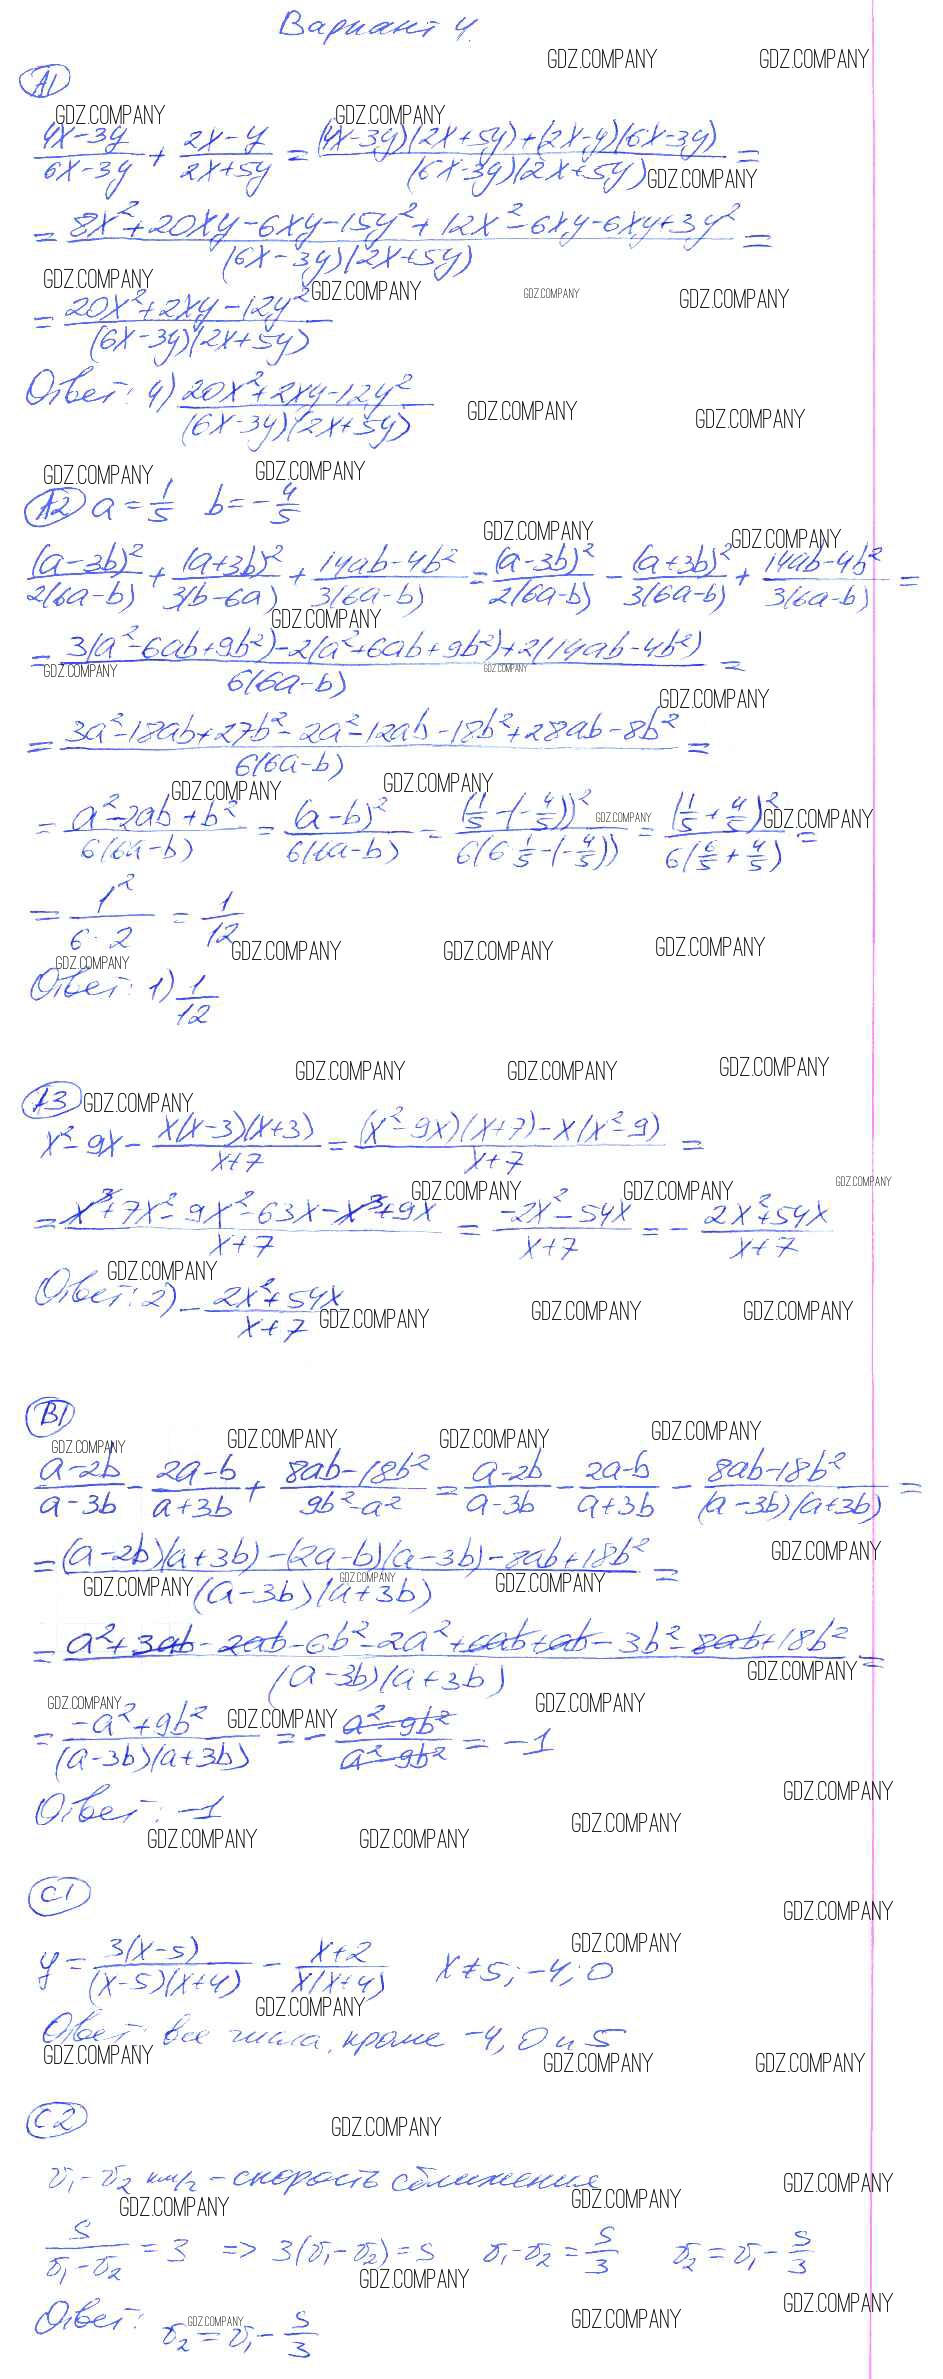 Вариант 4.
A1
(4x-3y)/(6x-3y) + (2x-y)/(2x+5y) = ((4x-3y)(2x+5y)+(2x-y)(6x-3y))/((6x-3y)(2x+5y)) =
= (8x²+20xy-6xy-15y²+12x²-6xy-6xy+3y²)/((6x-3y)(2x+5y)) =
= (20x²+2xy-12y²)/((6x-3y)(2x+5y))
Ответ: 4) (20x²+2xy-12y²)/((6x-3y)(2x+5y))
A2 a = 1/5 b = -4/5
(a-3b)²/(2(6a-b)) + (a+3b)²/(3(b-6a)) + (14ab-4b²)/(3(6a-b)) = (a-3b)²/(2(6a-b)) - (a+3b)²/(3(6a-b)) + (14ab-4b²)/(3(6a-b)) =
= (3(a²-6ab+9b²)-2(a²+6ab+9b²)+2(14ab-4b²))/(6(6a-b)) =
= (3a²-18ab+27b²-2a²-12ab-18b²+28ab-8b²)/(6(6a-b)) =
= (a²-2ab+b²)/(6(6a-b)) = (a-b)²/(6(6a-b)) = (1/5-(-4/5))²/(6(6·1/5-(-4/5))) = (1/5+4/5)²/(6(6/5+4/5)) =
= 1²/(6·2) = 1/12
Ответ: 1) 1/12
A3
x²-9x - x(x-3)(x+3)/(x+7) = ((x²-9x)(x+7)-x(x²-9))/(x+7) =
= (x³+7x²-9x²-63x-x³+9x)/(x+7) = (-2x²-54x)/(x+7) = - (2x²+54x)/(x+7)
Ответ: 2) - (2x²+54x)/(x+7)
B1
(a-2b)/(a-3b) - (2a-b)/(a+3b) + (8ab-18b²)/(9b²-a²) = (a-2b)/(a-3b) - (2a-b)/(a+3b) - (8ab-18b²)/((a-3b)(a+3b)) =
= ((a-2b)(a+3b)-(2a-b)(a-3b)-8ab+18b²)/((a-3b)(a+3b)) =
= (a²+3ab-2ab-6b²-2a²+6ab+ab-3b²-8ab+18b²)/((a-3b)(a+3b)) =
= (-a²+9b²)/((a-3b)(a+3b)) = - (a²-9b²)/(a²-9b²) = -1
Ответ: -1
C1
y = 3(x-5)/((x-5)(x+4)) - (x+2)/(x(x+4)) x≠5; -4; 0
Ответ: все числа, кроме -4, 0 и 5
C2
v₁-v₂ км/ч - скорость сближения
S/(v₁-v₂) = 3 => 3(v₁-v₂)=S v₁-v₂ = S/3 v₂ = v₁ - S/3
Ответ: v₂ = v₁ - S/3
GDZ.COMPANY